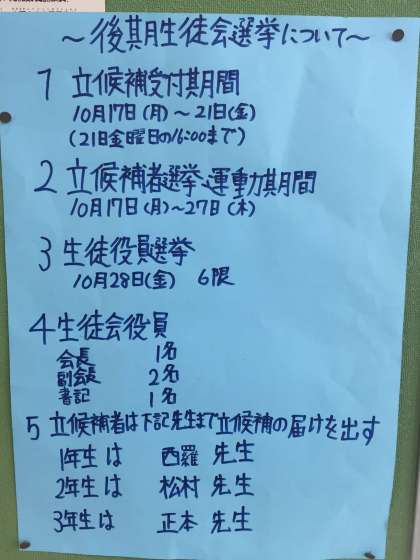 ～後期生徒会選挙について～
1 立候補受付期間
10月17日(月)～21日(金)
(21日金曜日の16:00まで)
2 立候補者選挙運動期間
10月17日(月)～27日(木)
3 生徒役員選挙
10月28日(金) 6限
4 生徒会役員
会長 1名
副会長 2名
書記 1名
5 立候補者は下記先生まで立候補の届けを出す
1年生は 西羅 先生
2年生は 松村 先生
3年生は 正本 先生